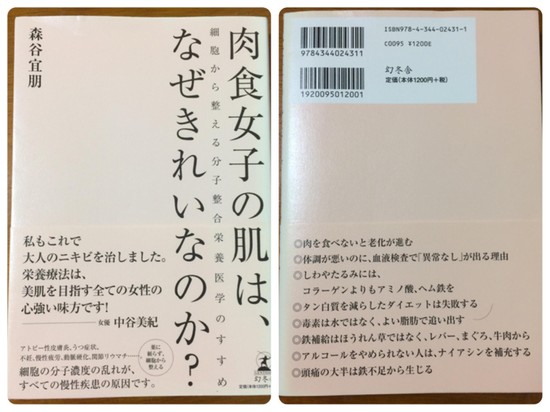 森谷宜朋
肉食女子の肌は、
なぜきれいなのか?
細胞から整える分子整合栄養医学のすすめ
私もこれで
大人のニキビを治しました。
栄養療法は、
美肌を目指す全ての女性の
心強い味方です!
女優 中谷美紀
アトピー性皮膚炎、うつ症状、
不妊、慢性疲労、動脈硬化、関節リウマチ…
薬に
頼らず、細胞から
整える
細胞の分子濃度の乱れが、
すべての慢性疾患の原因です。
幻冬舎
定価(本体1200円+税)
ISBN978-4-344-02431-1
C0095 ¥1200E
9784344024311
幻冬舎
定価(本体1200円+税)
1920095012001
◎肉を食べないと老化が進む
◎体調が悪いのに、血液検査で「異常なし」が出る理由
◎しわやたるみには、
コラーゲンよりもアミノ酸、ヘム鉄を
◎タン白質を減らしたダイエットは失敗する
◎毒素は水ではなく、よい脂肪で追い出す
◎鉄補給はほうれん草ではなく、レバー、まぐろ、牛肉から
◎アルコールをやめられない人は、ナイアシンを補充する
◎頭痛の大半は鉄不足から生じる